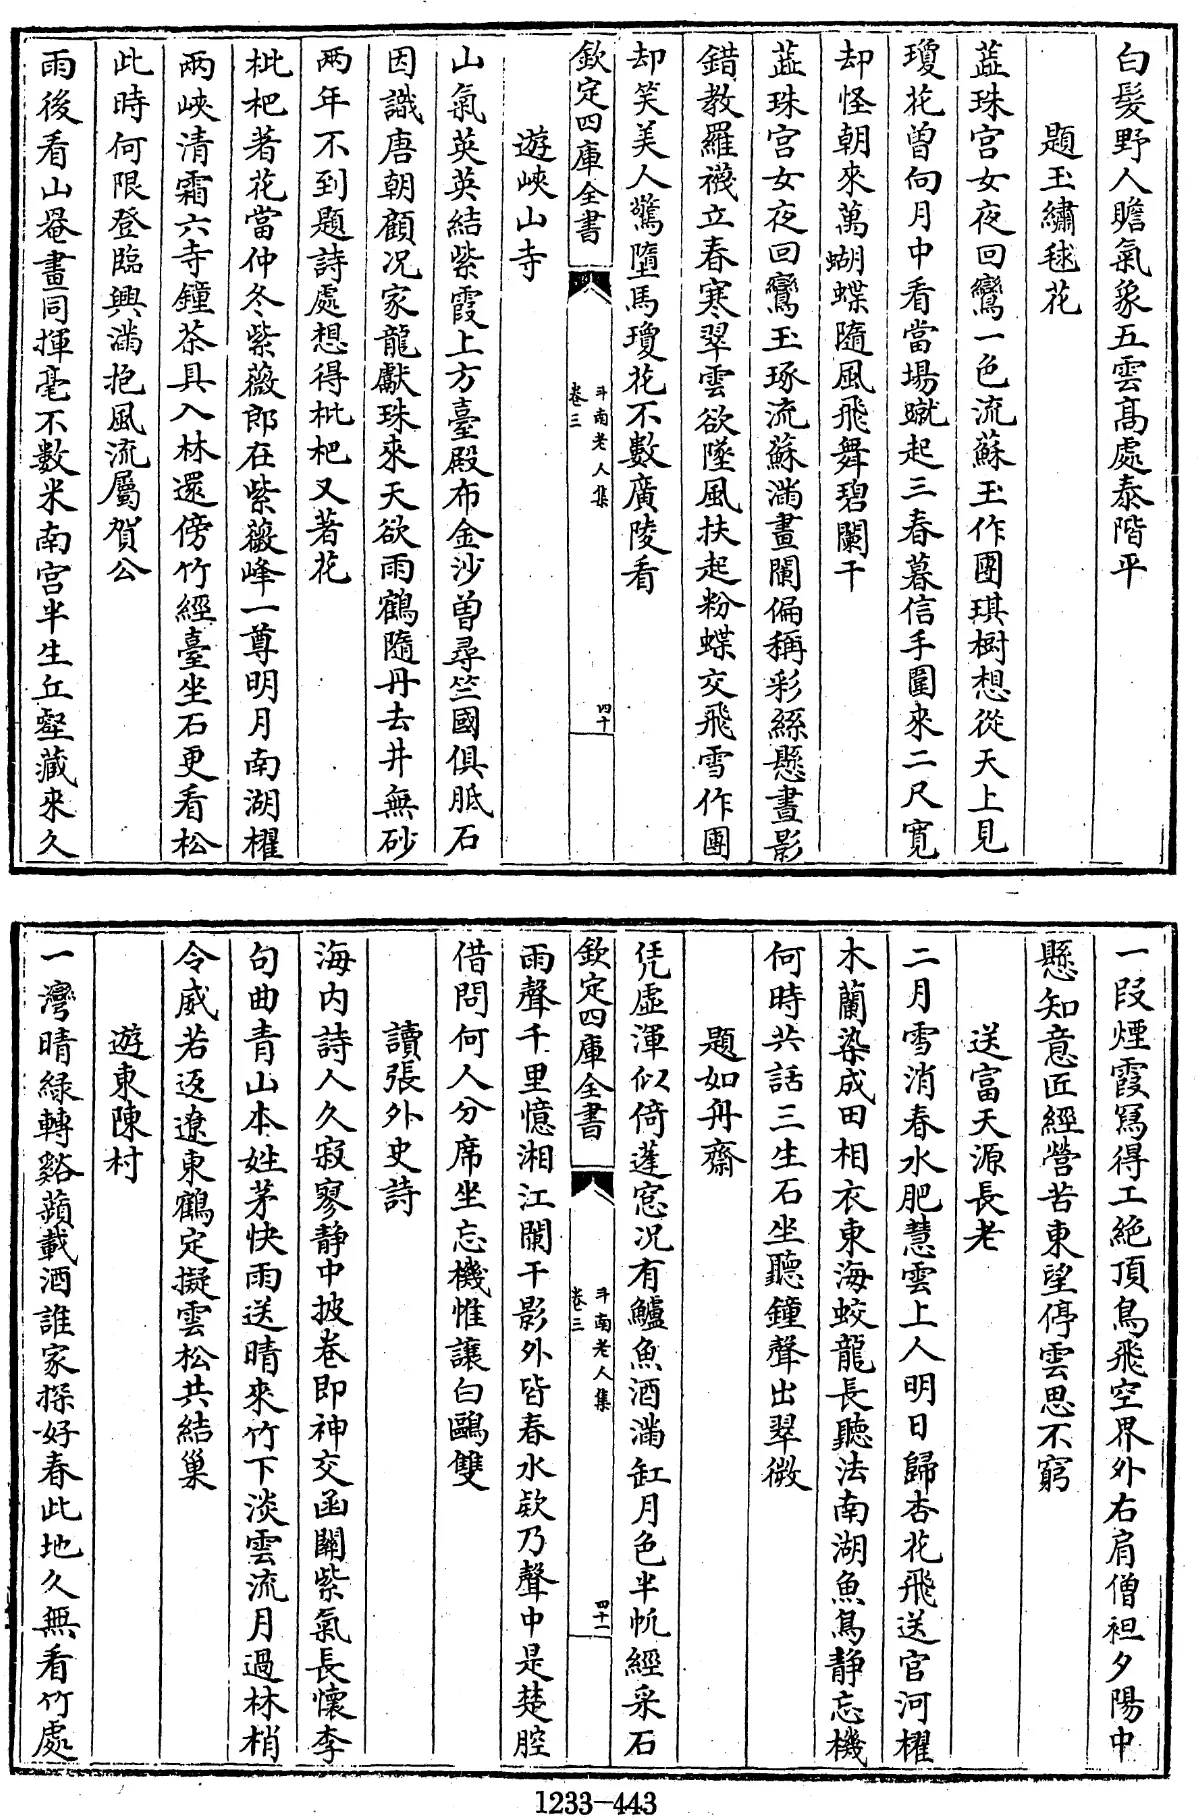 白髮野人瞻氣象五雲髙處泰階平
題玉繡毬花
蕋珠宫女夜回鸞一色流蘇玉作團琪樹想從天上見
瓊花曽向月中看當場蹴起三春暮信手圍來二尺寛
却怪朝來萬蝴蝶隨風飛舞碧闌干
蕋珠宫女夜回鸞玉琢流蘇滿畫闌偏稱彩絲懸晝影
錯教羅襪立春寒翠雲欲墜風扶起粉蝶交飛雪作團
却笑美人驚墮馬瓊花不數廣陵看
欽定四庫全書
斗南老人集
卷三
四十
遊峽山寺
山氣英英結紫霞上方臺殿布金沙曽尋竺國俱胝石
因識唐朝顧况家龍獻珠來天欲雨鶴隨丹去井無砂
兩年不到題詩處想得枇杷又著花
枇杷著花當仲冬紫薇郎在紫薇峰一尊明月南湖櫂
兩峽清霜六寺鐘茶具入林還傍竹經臺坐石更看松
此時何限登臨興滿抱風流屬賀公
雨後看山菴畫同揮毫不數米南宫半生丘壑藏來久
一段煙霞冩得工絶頂鳥飛空界外右肩僧袒夕陽中
懸知意匠經營苦東望停雲思不窮
送富天源長老
二月雪消春水肥慧雲上人明日歸杏花飛送官河櫂
木蘭染成田相衣東海蛟龍長聽法南湖魚鳥静忘機
何時共話三生石坐聽鐘聲出翠微
題如舟齋
凭虛渾似倚蓬窓况有鱸魚酒滿缸月色半帆經采石
欽定四庫全書
斗南老人集
卷三
四十一
雨聲千里憶湘江闌干影外皆春水欵乃聲中是楚腔
借問何人分席坐忘機惟讓白鷗雙
讀張外史詩
海内詩人久寂寥静中披卷即神交函闗紫氣長懷李
句曲青山本姓茅快雨送晴來竹下淡雲流月過林梢
令威若返遼東鶴定擬雲松共結巢
遊東陳村
一灣晴緑轉谿蘋載酒誰家探好春此地久無看竹處
1233-443